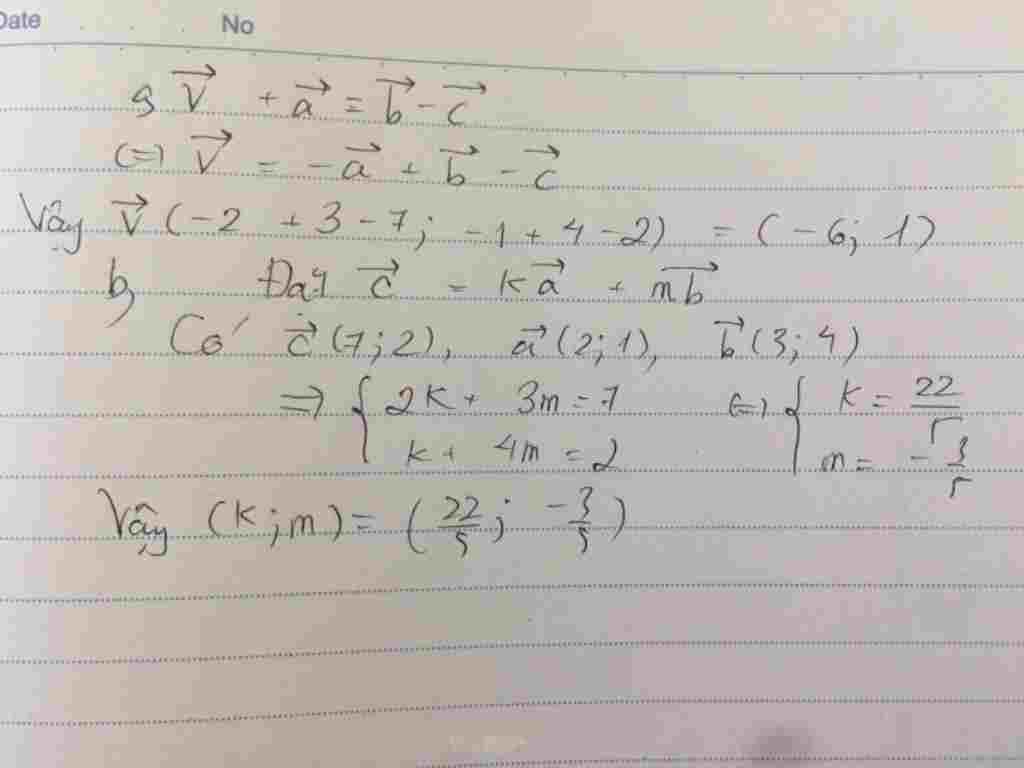 Date No
a, \vec{v} + \vec{a} = \vec{b} - \vec{c}
(=) \vec{v} = -\vec{a} + \vec{b} - \vec{c}
Vậy \vec{v} (-2 + 3 - 7; -1 + 4 - 2) = (-6; 1)
b, Đặt \vec{c} = k\vec{a} + \vec{mb}
Có \vec{c} (7; 2), \vec{a} (2; 1), \vec{b} (3; 4)
=> { 2k + 3m = 7 (=) { k = 22/5
k + 4m = 2 m = -3/5
Vậy (k; m) = (22/5; -3/5)